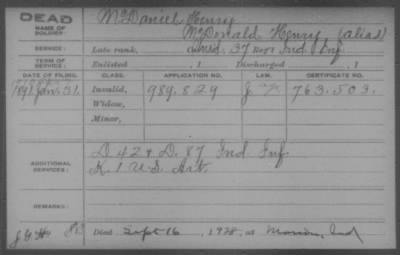 DEAD
NAME OF SOLDIER:
McDaniel Henry
McDonald Henry (alias)
SERVICE:
Late rank, 37 Reg't Ind Inf
TERM OF SERVICE:
Enlisted , 1 Discharged , 1
DATE OF FILING. CLASS. APPLICATION NO. LAW. CERTIFICATE NO.
1891 Jan. 31. Invalid, 989.829 763.503.
Widow,
Minor,
ADDITIONAL SERVICES:
D 42 & D. 87 Ind Inf
K. 1 U.S. Art.
REMARKS:
Died Sept 16, 1928, at Marion, Ind